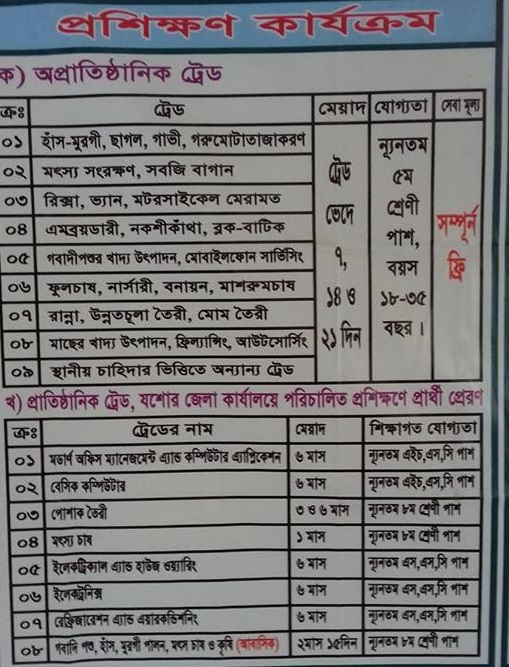 প্রশিক্ষণ কার্যক্রম
ক) অপ্রাতিষ্ঠানিক ট্রেড
ক্রঃ ট্রেড মেয়াদ যোগ্যতা সেবা মূল্য
০১ হাঁস-মুরগী, ছাগল, গাভী, গরুমোটাতাজাকরণ
০২ মৎস্য সংরক্ষণ, সবজি বাগান
০৩ রিক্সা, ভ্যান, মটরসাইকেল মেরামত
০৪ এমব্রয়ডারী, নকশীকাঁথা, ব্লক-বাটিক
০৫ গবাদীপশুর খাদ্য উৎপাদন, মোবাইলফোন সার্ভিসিং
০৬ ফুলচাষ, নার্সারী, বনায়ন, মাশরুমচাষ
০৭ রান্না, উন্নতচুলা তৈরী, মোম তৈরী
০৮ মাছের খাদ্য উৎপাদন, ফ্রিল্যান্সিং, আউটসোর্সিং
০৯ স্থানীয় চাহিদার ভিত্তিতে অন্যান্য ট্রেড
ট্রেড
ভেদে
৭,
১৪ ও
২১ দিন
ন্যূনতম
৫ম
শ্রেণী
পাশ,
বয়স
১৮-৩৫
বছর।
সম্পূর্ন
ফ্রি
খ) প্রাতিষ্ঠানিক ট্রেড, যশোর জেলা কার্যালয়ে পরিচালিত প্রশিক্ষণে প্রার্থী প্রেরণ
ক্রঃ ট্রেডের নাম মেয়াদ শিক্ষাগত যোগ্যতা
০১ মডার্ণ অফিস ম্যানেজমেন্ট এ্যান্ড কম্পিউটার এ্যাপ্লিকেশন ৬ মাস ন্যূনতম এইচ,এস,সি পাশ
০২ বেসিক কম্পিউটার ৬ মাস ন্যূনতম এইচ,এস,সি পাশ
০৩ পোশাক তৈরী ৩ ও ৬ মাস ন্যূনতম ৮ম শ্রেণী পাশ
০৪ মৎস্য চাষ ১ মাস ন্যূনতম ৮ম শ্রেণী পাশ
০৫ ইলেকট্রিক্যাল এ্যান্ড হাউজ ওয়্যারিং ৬ মাস ন্যূনতম এস,এস,সি পাশ
০৬ ইলেকট্রনিক্স ৬ মাস ন্যূনতম এস,এস,সি পাশ
০৭ রেফ্রিজারেশন এ্যান্ড এয়ারকন্ডিশনিং ৬ মাস ন্যূনতম এস,এস,সি পাশ
০৮ গবাদি পশু, হাঁস, মুরগী পালন, মৎস চাষ ও কৃষি (আবাসিক) ২মাস ১৫দিন ন্যূনতম ৮ম শ্রেণী পাশ